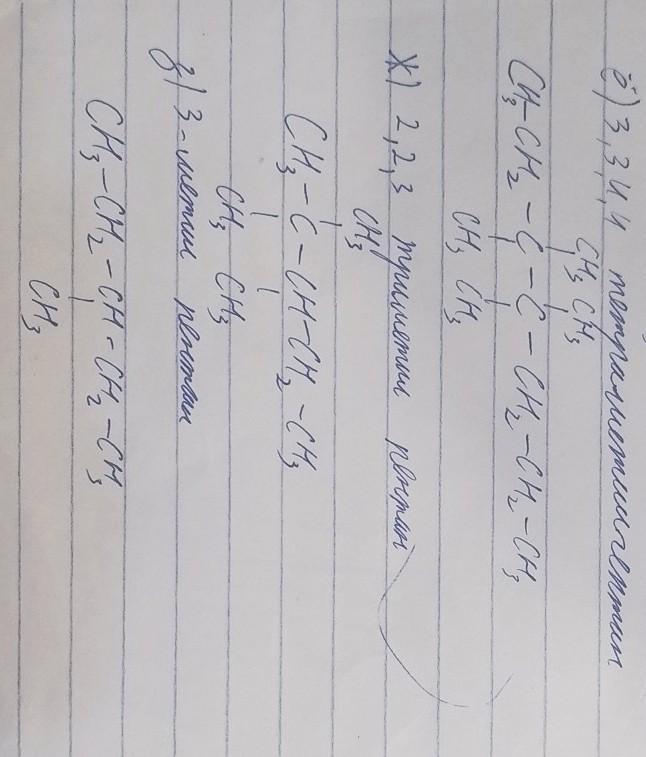 ё) 3,3,4,4 тетраметилгептан
CH₃ CH₃
CH₃-CH₂-C-C-CH₂-CH₂-CH₃
CH₃ CH₃
ж) 2,2,3 триметил пентан
CH₃
CH₃-C-CH-CH₂-CH₃
CH₃ CH₃
з) 3-метил пентан
CH₃-CH₂-CH-CH₂-CH₃
CH₃